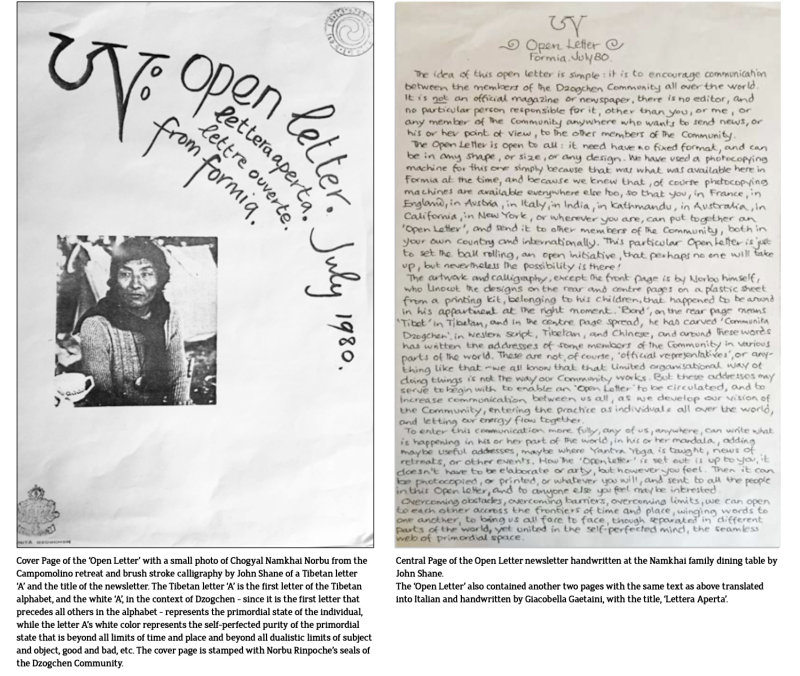 ཨ:
open letter. July 1980.
lettera aperta.
lettre ouverte.
from formia.
ཨ
Open Letter
Formia. July 80.
The idea of this open letter is simple: it is to encourage communication
between the members of the Dzogchen Community all over the world.
It is not an official magazine or newspaper, there is no editor, and
no particular person responsible for it, other than you, or me, or
any member of the Community anywhere who wants to send news, or
his or her point of view, to the other members of the Community.
The Open Letter is open to all: it need have no fixed format, and can
be in any shape, or size, or any design. We have used a photocopying
machine for this one simply because that was what was available here in
Formia at the time, and because we knew that, of course photocopying
machines are available everywhere else too, so that you, in France, in
England, in Austria, in Italy, in India, in Kathmandu, in Australia, in
California, in New York, or wherever you are, can put together an
'Open Letter', and send it to other members of the Community, both in
your own country and internationally. This particular Open Letter is just
to set the ball rolling, an open initiative, that perhaps no one will take
up, but nevertheless the possibility is there!
The artwork and calligraphy, except the front page is by Norbu himself,
who linocut the designs on the rear and centre pages on a plastic sheet
from a printing kit, belonging to his children, that happened to be around
in his appartment at the right moment. 'Bod', on the rear page means
'Tibet' in Tibetan, and in the centre page spread, he has carved 'Community
Dzogchen', in western script, Tibetan, and Chinese, and around these words
has written the addresses of some members of the Community in various
parts of the world. These are not, of course, 'official representatives', or any-
thing like that - we all know that that limited organisational way of
doing things is not the way our Community works. But these addresses may
serve to begin with to enable an 'Open Letter' to be circulated, and to
increase communication between us all, as we develop our vision of
the Community, entering the practice as individuals all over the world,
and letting our energy flow together.
To enter this communication more fully, any of us, anywhere, can write what
is happening in his or her part of the world, in his or her mandala, adding
maybe useful addresses, maybe where Yantra Yoga is taught, news of
retreats, or other events. How the 'Open Letter' is set out is up to you, it
doesn't have to be elaborate or arty, but however you feel. Then it can
be photocopied, or printed, or whatever you will, and sent to all the people
in this Open Letter, and to anyone else you feel may be interested.
Overcoming obstacles, overcoming barriers, overcoming limits, we can open
to each other accross the frontiers of time and place, winging words to
one another, to bring us all face to face, though separated in different
parts of the world, yet united in the self-perfected mind, the seamless
web of primordial space.
Cover Page of the 'Open Letter' with a small photo of Chogyal Namkhai Norbu from the
Campomolino retreat and brush stroke calligraphy by John Shane of a Tibetan letter
'A' and the title of the newsletter. The Tibetan letter 'A' is the first letter of the Tibetan
alphabet, and the white 'A', in the context of Dzogchen - since it is the first letter that
precedes all others in the alphabet - represents the primordial state of the individual,
while the letter A's white color represents the self-perfected purity of the primordial
state that is beyond all limits of time and place and beyond all dualistic limits of subject
and object, good and bad, etc. The cover page is stamped with Norbu Rinpoche's seals of
the Dzogchen Community.
Central Page of the Open Letter newsletter handwritten at the Namkhai family dining table by
John Shane.
The 'Open Letter' also contained another two pages with the same text as above translated
into Italian and handwritten by Giacobella Gaetaini, with the title, 'Lettera Aperta'.